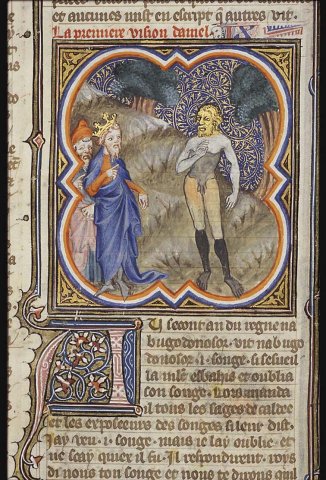 et aucunes mist en escript q̃ autres vit.
La premiere vision daniel. IX
Au second an du regne na
bugo donosor. vit nabugo
donosor .i. songe. si sesueil
la mlt̃ esbahis et oublia
son songe. Lors manda
il tous les sages de caldee
et les expositeurs des songes si leur dist.
Jay veu .i. songe. mais ie lay oublie. et
ne scay quiex il fu. Il respondirent. roys
di nous ton songe et nous te dirons quil